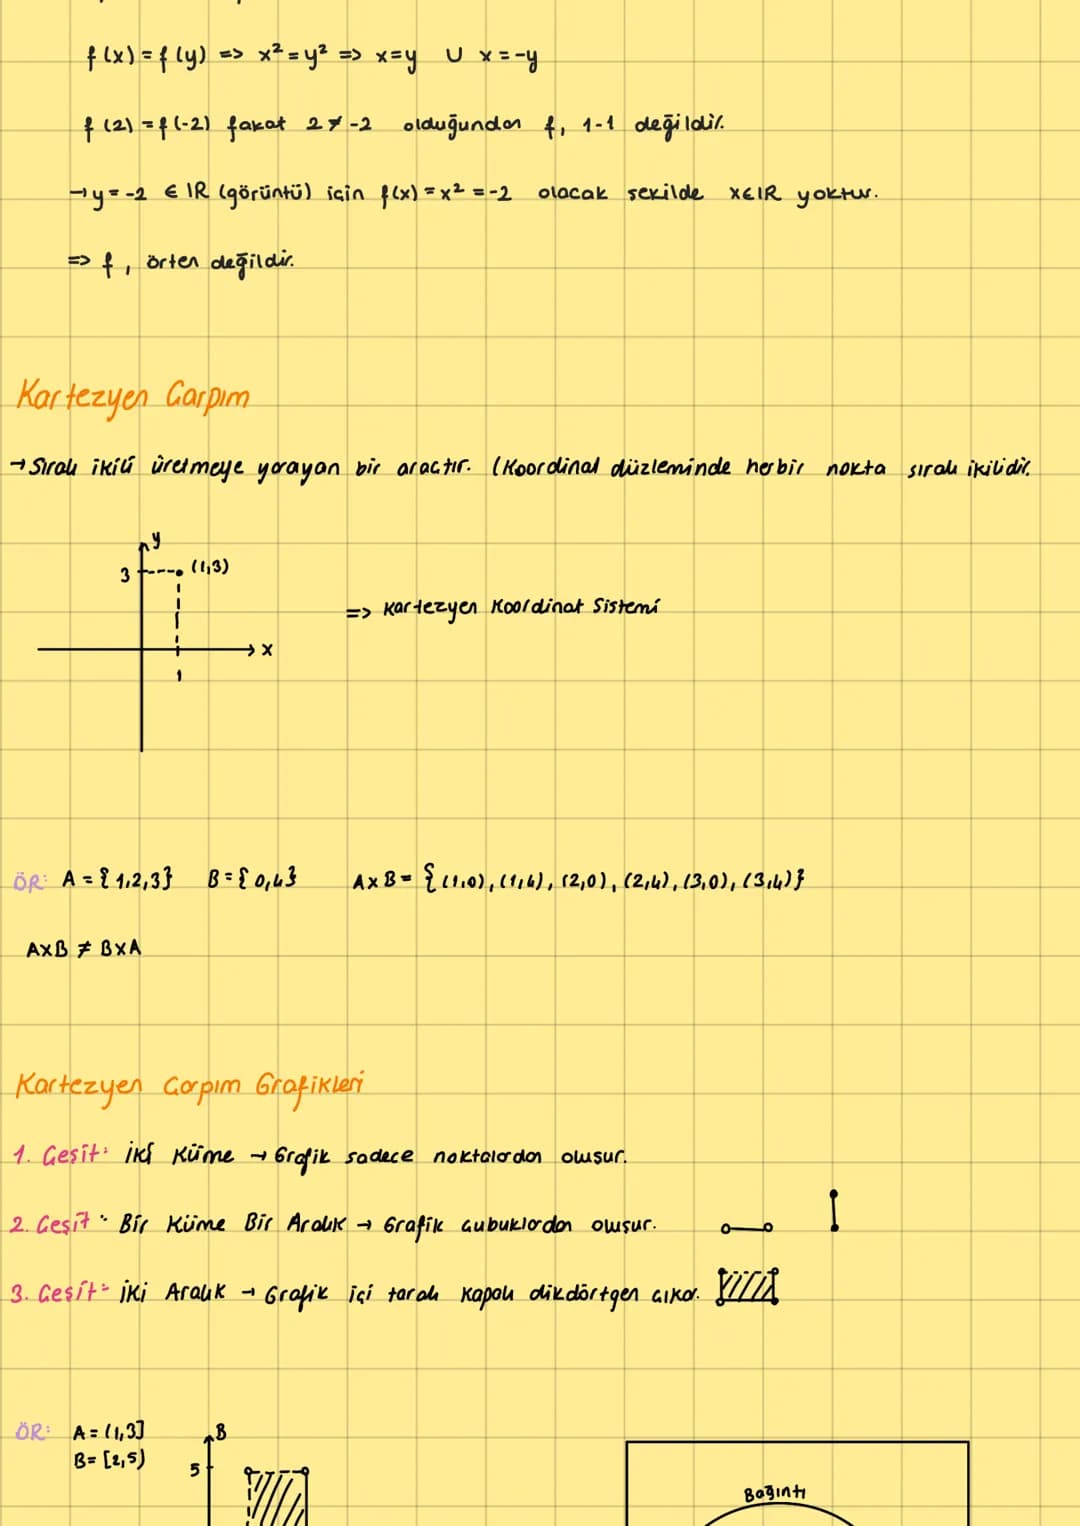 f(x) = f(y) => x² = y² => x=y U x=-y
f(2) = f(-2) fakat 2≠-2 olduğundan f, 1-1 değildir.
→ y = -2 ∈ IR (görüntü) için f(x) = x² = -2 olacak şekilde x∈IR yoktur.
=> f, örten değildir.
Kartezyen Çarpım
→ Sıralı ikili üretmeye yarayan bir araçtır. (Koordinat düzleminde her bir nokta sıralı ikilidir.
y
3 (1,3)
=> Kartezyen Koordinat Sistemi
x
1
ÖR: A = {1,2,3} B = {0,4} AxB = {(1,0), (1,4), (2,0), (2,4), (3,0), (3,4)}
AxB ≠ BxA
Kartezyen Çarpım Grafikleri
1. Çeşit: İki Küme → Grafik sadece noktalardan oluşur.
2. Çeşit: Bir Küme Bir Aralık → Grafik çubuklardan oluşur.
3. Çeşit: İki Aralık → Grafik içi taralı kapalı dikdörtgen çıkar.
ÖR: A = (1,3] B
B = [2,5) 5
Bağıntı